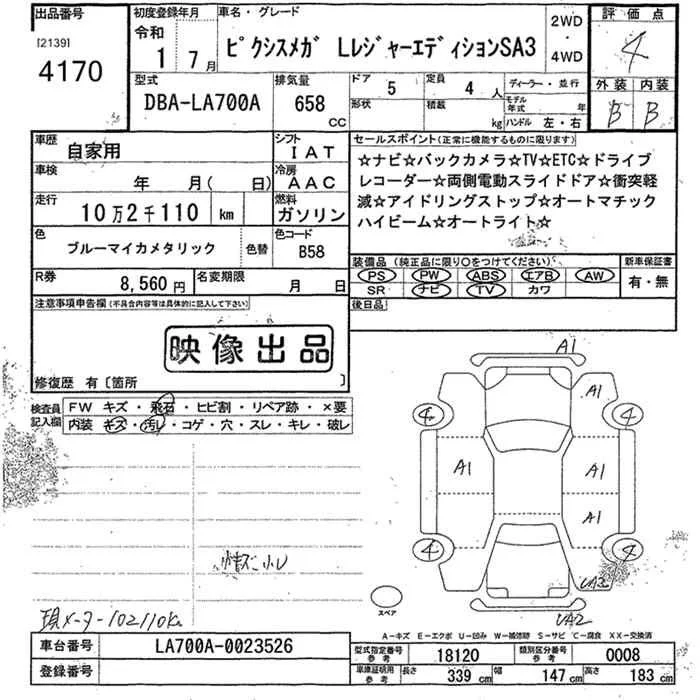 出品番号 初度登録年月 車名・グレード 2WD・4WD 評価点
[2139] 4170 令和 1 7月 ピクシスメガ LレジャーエディションSA3 4
型式 DBA-LA700A 排気量 658 CC ドア 5 定員 4 人 ディーラー・並行 外装 内装
形状 積載 kg モデル年式 年 ハンドル 左・右 B B
車歴 自家用 シフト IAT セールスポイント(正常に機能するものに限ります)
車検 年 月( 日) 冷房 AAC ☆ナビ☆バックカメラ☆TV☆ETC☆ドライブ
レコーダー☆両側電動スライドドア☆衝突軽
走行 10万2千110 km 燃料 ガソリン 減☆アイドリングストップ☆オートマチック
ハイビーム☆オートライト☆
色 ブルーマイカメタリック 色替 色コード B58
装備品(純正品に限り○をつけてください) 新車保証書
R券 8,560円 名変期限 月 日 PS PW ABS エアB AW 有・無
SR ナビ TV カワ
注意事項申告欄(不具合内容等は具体的に記入して下さい) 後日品
映像出品
修復歴 有〔箇所 〕
検査員記入欄 FW キズ・飛石・ヒビ割・リペア跡・×要
内装 キズ・汚レ・コゲ・穴・スレ・キレ・破レ
A1
A1
4 4
A1 A1
A1
4 4
UA2
スペア
現メーター102110K
A-キズ E-エクボ U-凹み W-補修跡 S-サビ C-腐食 XX-交換済
車台番号 LA700A-0023526 型式指定番号参考 18120 類別区分番号参考 0008
登録番号 車庫証明用参考 長さ 339 cm 幅 147 cm 高さ 183 cm